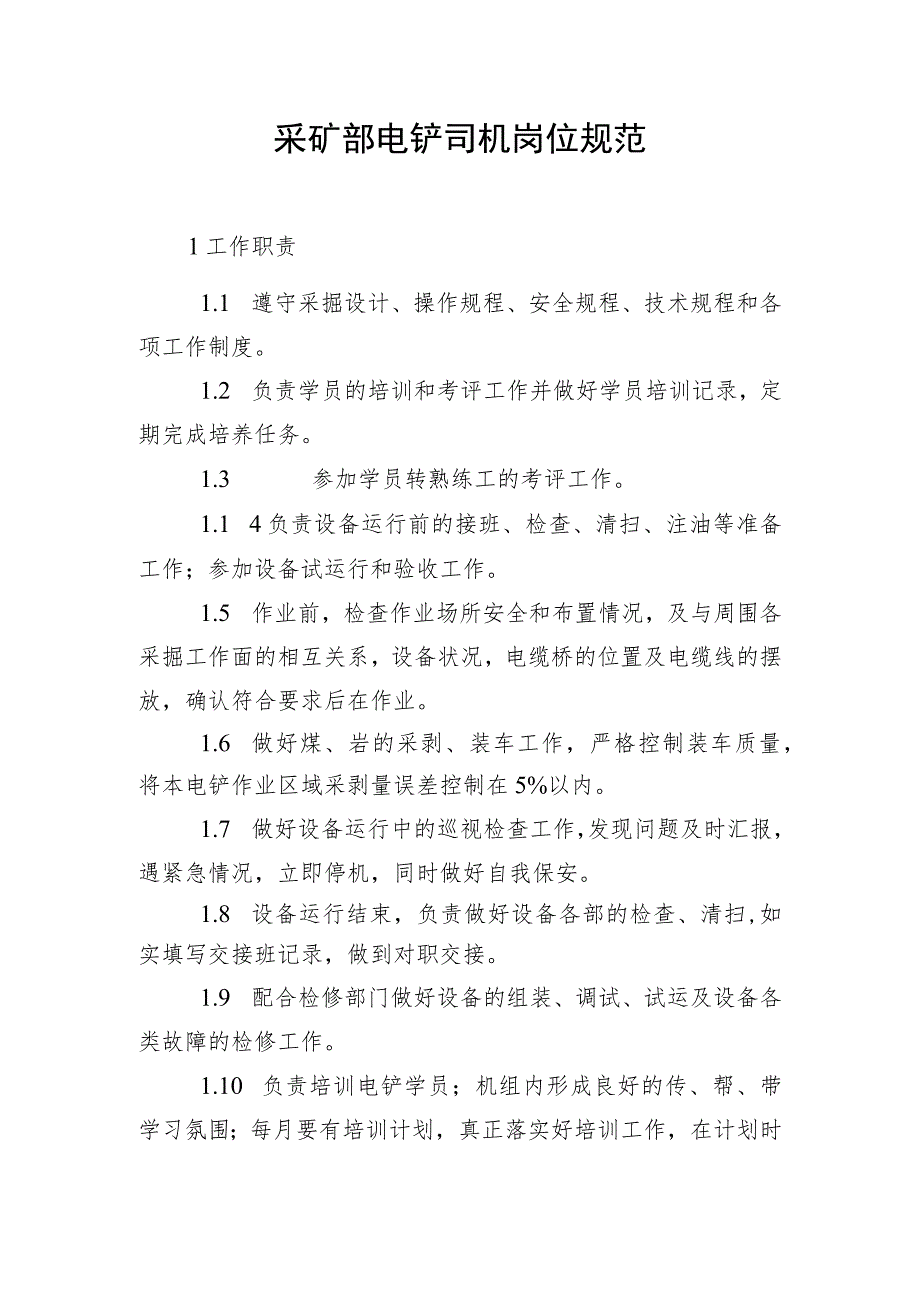 采矿部电铲司机岗位规范
1 工作职责
1.1 遵守采掘设计、操作规程、安全规程、技术规程和各
项工作制度。
1.2 负责学员的培训和考评工作并做好学员培训记录，定
期完成培养任务。
1.3 参加学员转熟练工的考评工作。
1.1 4负责设备运行前的接班、检查、清扫、注油等准备
工作；参加设备试运行和验收工作。
1.5 作业前，检查作业场所安全和布置情况，及与周围各
采掘工作面的相互关系，设备状况，电缆桥的位置及电缆线的摆
放，确认符合要求后在作业。
1.6 做好煤、岩的采剥、装车工作，严格控制装车质量，
将本电铲作业区域采剥量误差控制在 5%以内。
1.7 做好设备运行中的巡视检查工作,发现问题及时汇报，
遇紧急情况，立即停机，同时做好自我保安。
1.8 设备运行结束，负责做好设备各部的检查、清扫,如
实填写交接班记录，做到对职交接。
1.9 配合检修部门做好设备的组装、调试、试运及设备各
类故障的检修工作。
1.10 负责培训电铲学员；机组内形成良好的传、帮、带
学习氛围；每月要有培训计划，真正落实好培训工作，在计划时